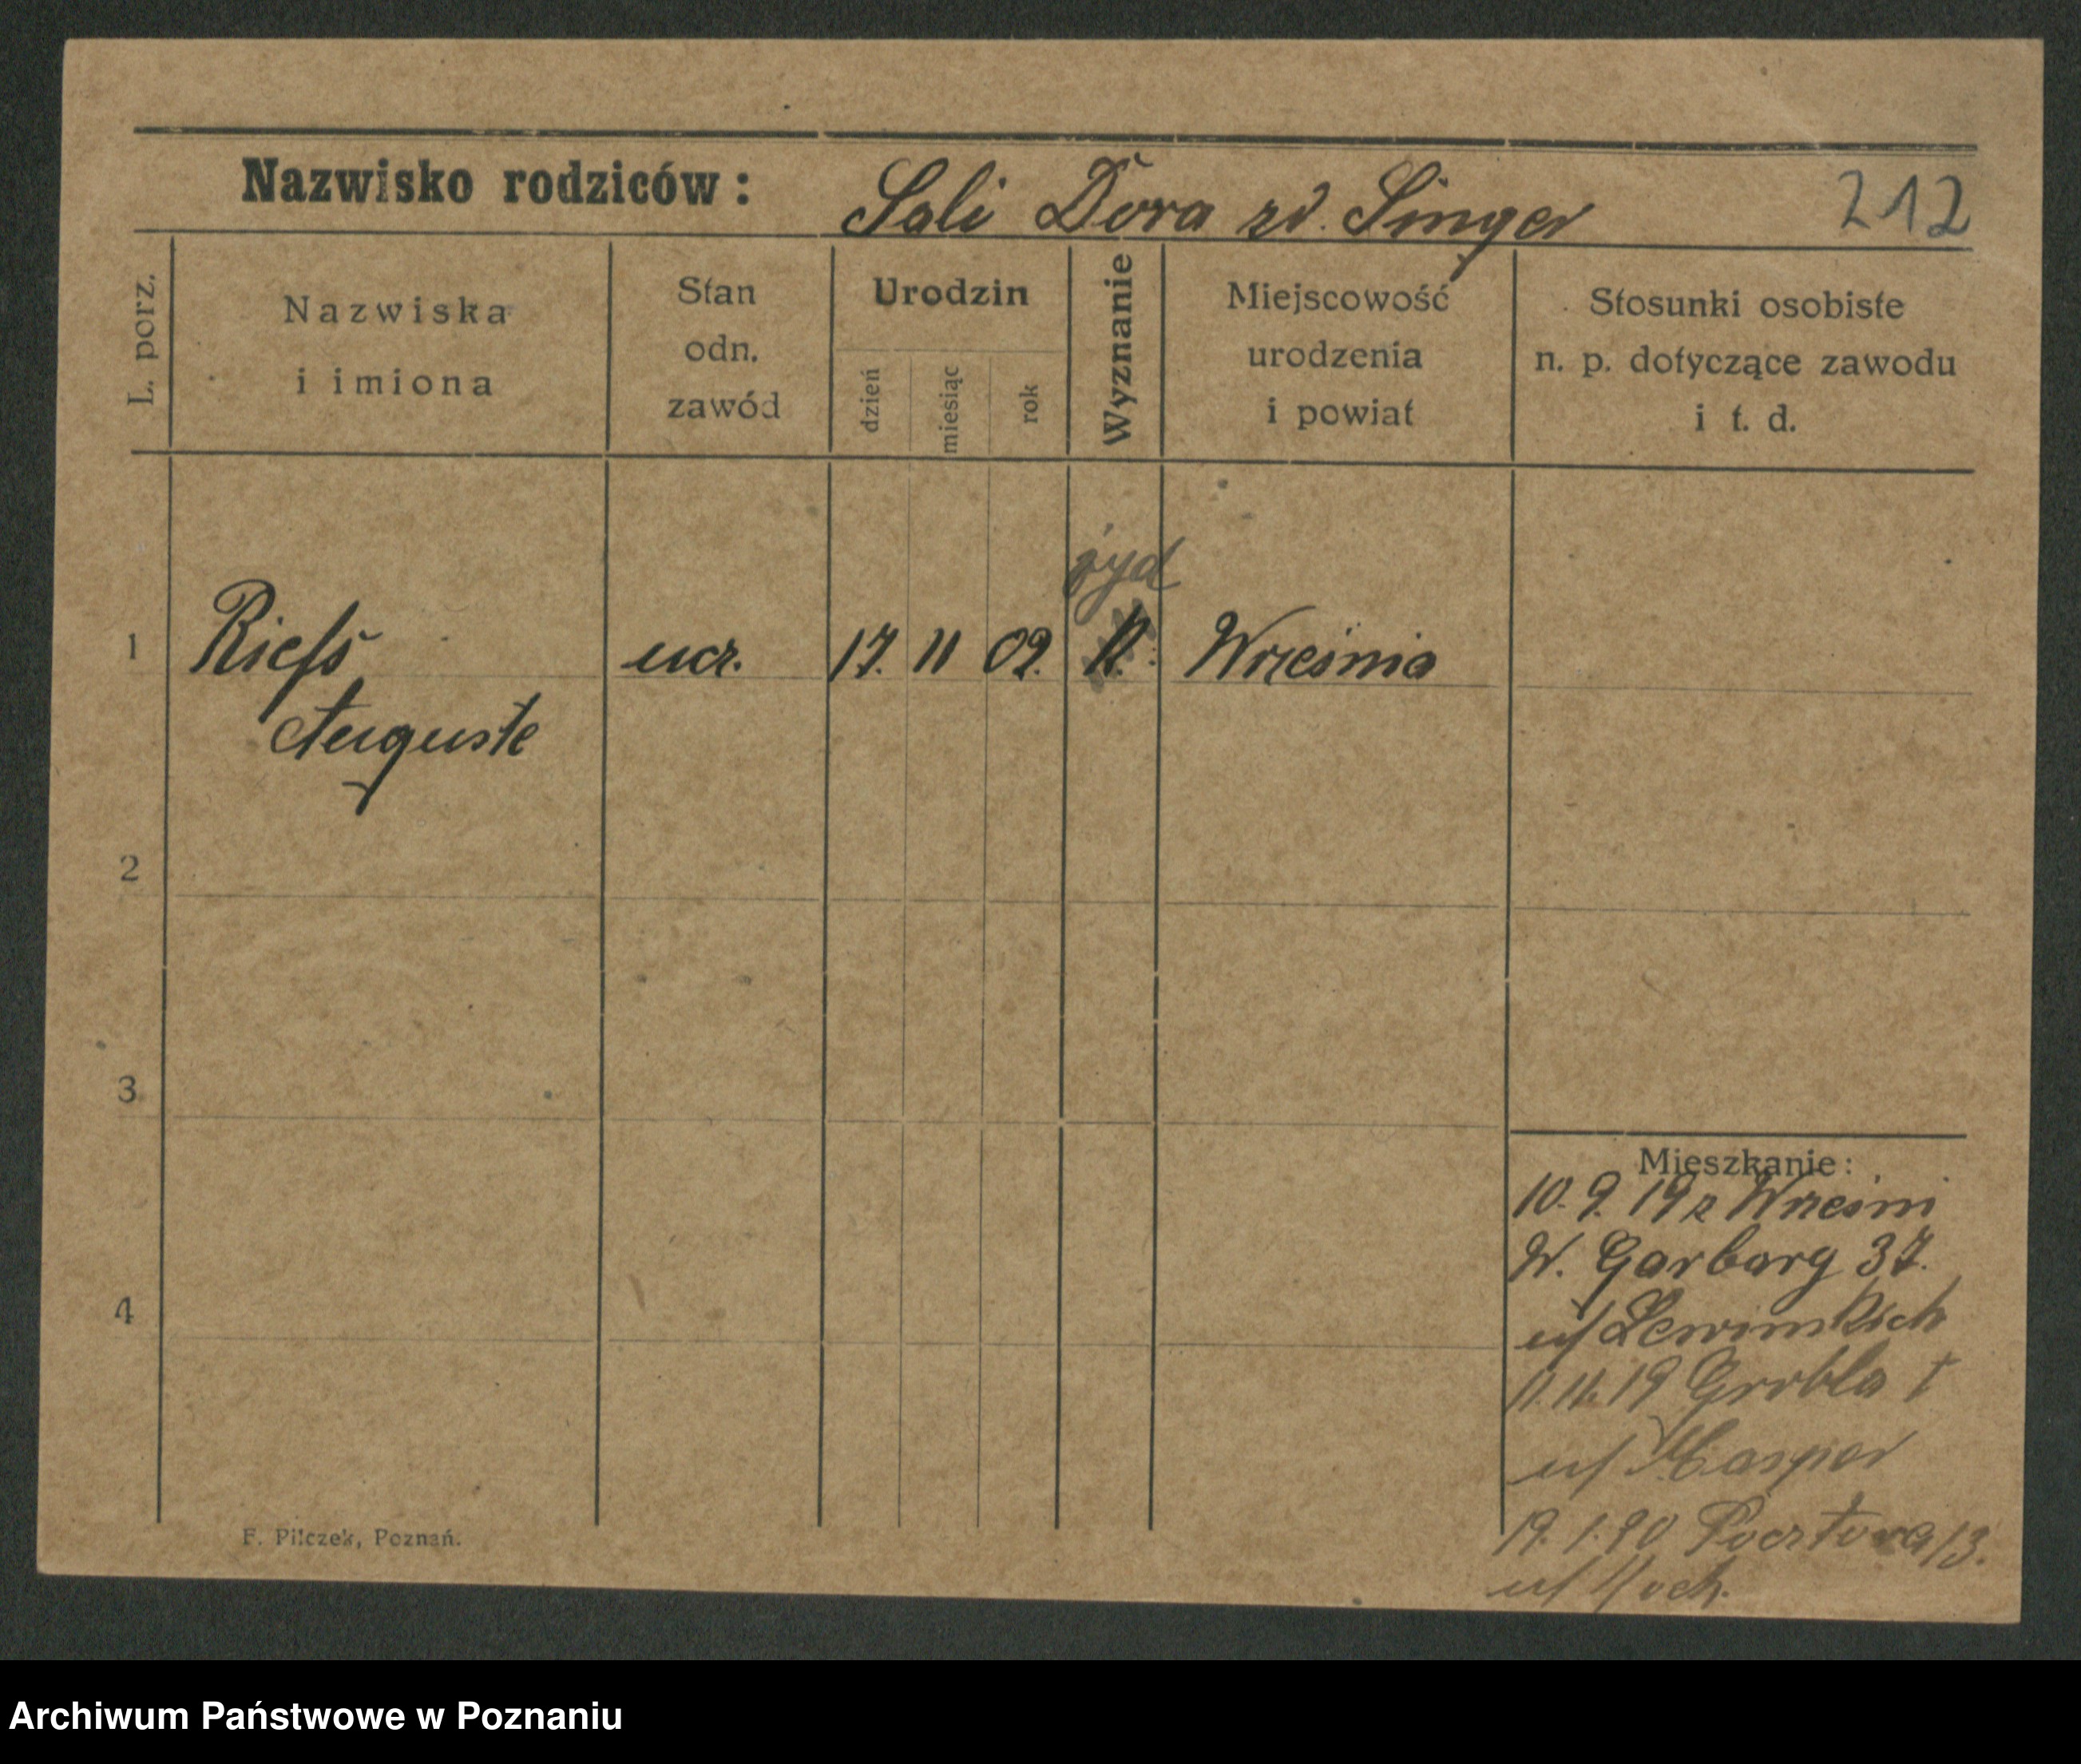 Nazwisko rodziców: Sali Dora zd. Singer 212
L. porz.
Nazwiska
i imiona
Stan
odn.
zawód
Urodzin
dzień
miesiąc
rok
Wyznanie
Miejscowość
urodzenia
i powiat
Stosunki osobiste
n. p. dotyczące zawodu
i t. d.
żyd
1 Riess ucz. 17. 11 09. Września
Auguste
2
3
4
Mieszkanie:
10. 9. 19 z Wrześni
W. Garbary 37.
u/
11. 11. 19 Grobla 1
u/ Kasper
19. 1. 20 Pocztowa 13.
u/ Koch.
F. Pilczek, Poznań.
Archiwum Państwowe w Poznaniu